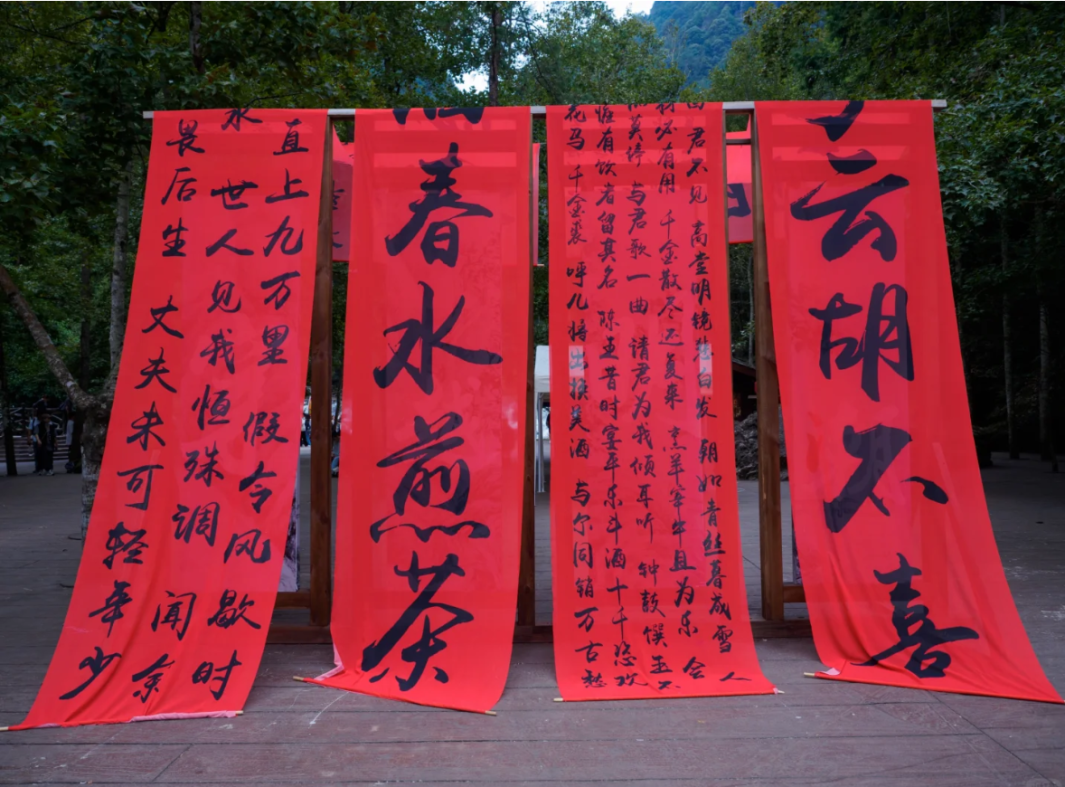 云胡不喜
君不见 高堂明镜悲白发 朝如青丝暮成雪 人
材必有用 千金散尽还复来 烹羊宰牛且为乐 会
莫停 与君歌一曲 请君为我倾耳听 钟鼓馔玉不
惟有饮者留其名 陈王昔时宴平乐 斗酒十千恣欢
花马 千金裘 呼儿将出换美酒 与尔同销万古愁
春水煎茶
直上九万里 假令风歇时
水 世人见我恒殊调 闻余
畏后生 丈夫未可轻年少